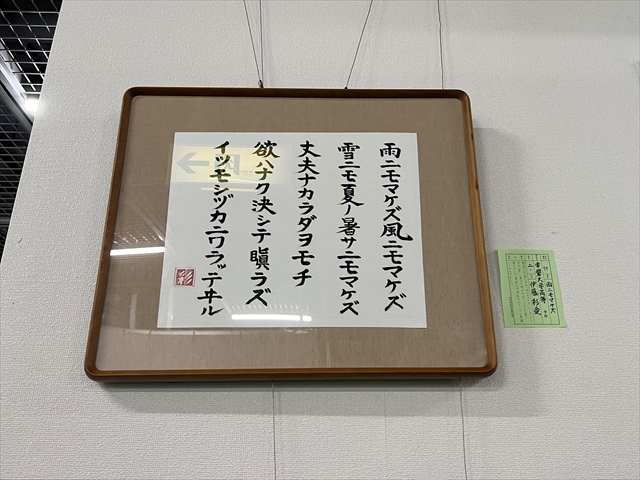 雨ニモマケズ風ニモマケズ
雪ニモ夏ノ暑サニモマケズ
丈夫ナカラダヲモチ
欲ハナク決シテ瞋ラズ
イツモシヅカニワラッテヰル
彩
雨ニモマケズ
伊藤彩愛